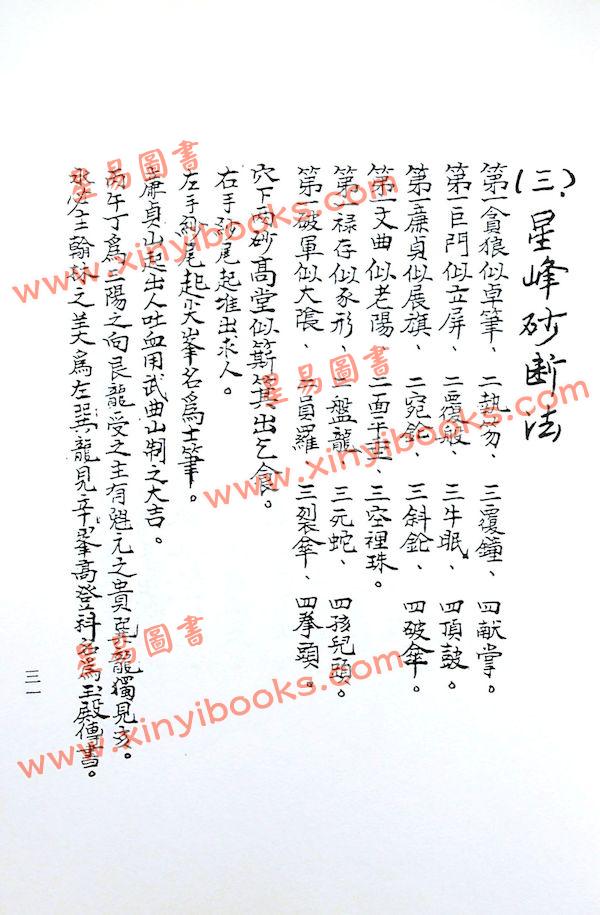 (三)、星峰砂断法
第一貪狼似卓筆、二執笏、三覆鐘、四献掌。
第一巨門似立屏、二覆般、三牛眠、四頂鼓。
第一廉貞似展旗、二宛鈊、三斜鈊、四破傘。
第一文曲似老陽、二酉平曲、三空裡珠。
第一禄存似豕形、一盤龍、三死蛇、四孩兒頭。
第一破軍似大隕、羅、三裂傘、四拳頭。
穴下內砂高堂似簛箕出乞食。
右手砂尾起堆出求人。
左手砂尾起尖峯名為士筆。
廉貞山起出人吐血用武曲山制之大吉。
丙午丁為三陽之向艮龍受之主有魁元之貴巽龍獨見亥。
永必主翰林之美為左巽龍見辛峯高登科名為玉殿傳書。
三一
星易圖書
www.xinyibooks.com
星易圖書
www.xinyibooks.com
星易圖書
www.xinyibooks.com